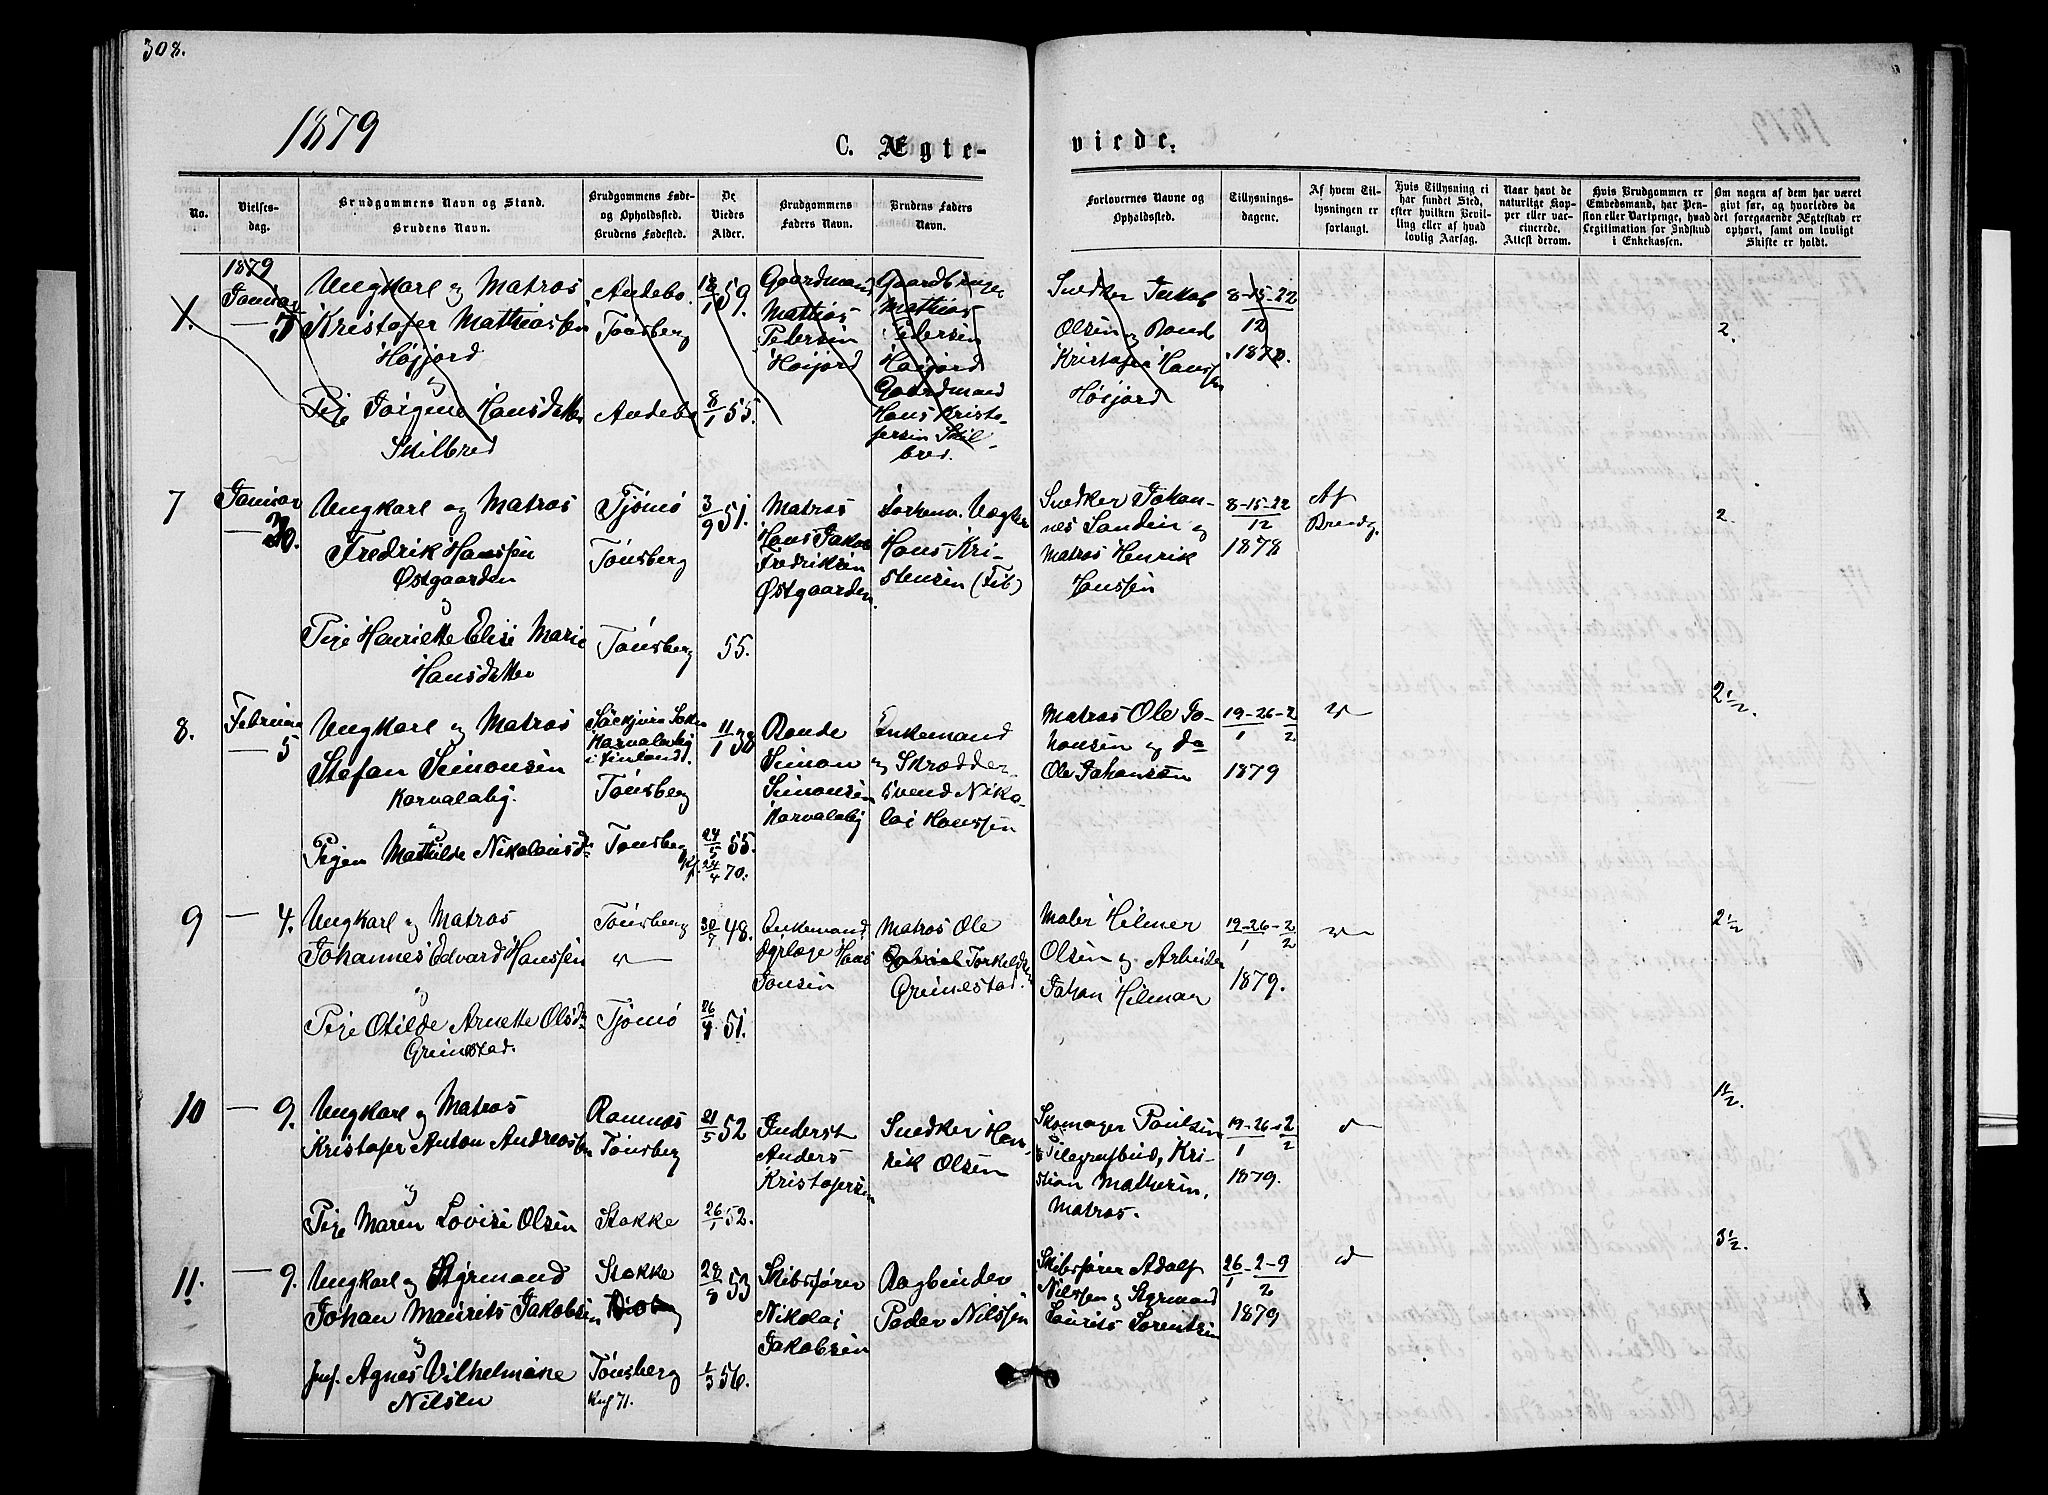 308.
1879
C. Ægte-
viede.
No.
Vielses-
dag.
Brudgommens Navn og Stand.
Brudens Navn.
Brudgommens Føde-
og Opholdssted.
Brudens Fødested.
De
Viedes
Alder.
Brudgommens
Faders Navn.
Brudens Faders
Navn.
Forlovernes Navne og
Opholdssted.
Tillysnings-
dagene.
Af hvem Til-
lysningen er
forlangt.
Hvis Tillysning ei
har fundet Sted,
efter hvilken Bevil-
ling eller af hvad
lovlig Aarsag.
Naar havt de
naturlige Kop-
per eller vac-
cinerede.
Attest derom.
Hvis Brudgommen er
Embedsmand, har Pen-
sion eller Vartpenge, hvad
Legitimation for Indskud
i Enkekassen.
Om nogen af dem har været
givt før, og hvorledes da
det foregaaende Ægteskab er
ophørt, samt om lovligt
Skifte er holdt.
1879
Januar
— 5
Ungkarl og Matros
Kristofer Mathiassen
Høijord
og
Pige Jørgine Hansdatter
Skilbred
Andebo.
Tønsberg
Andebo
18/1 59.
8/1 55.
Gaardmand
Mathias
Pedersen
Høijord
Gaardbruger
Mathias
Pedersen
Høijord
Gaardmand
Hans Kristo-
fersen Skil-
bred.
Snedker Jakob
Olsen og Bonde
Kristofer Hanssen
Høijord
8-15-22
12
1878.
2.
7
Januar
— 20.
Ungkarl og Matros
Fredrik Hanssen
Østgaarden
og
Pige Henriette Elise Marie
Hansdatter
Tjømø
Tønsberg
Tønsberg
3/9 51.
55.
Matros
Hans Jakob
Fredriksen
Østgaarden.
Hans Kri-
stensen (Fib)
Snedker Johan-
nes Sandin og
Matros Henrik
Hanssen
8-15-22
12
1878
Af
Brudg.
2.
8.
Februar
— 5
Ungkarl og Matros
Stefan Simonsen
Karvalaby.
og
Pigen Mathilde Nikolaisd.
Karvalaby
i Finland.
Tønsberg
Tønsberg
11/1 38
24/5 55.
24/4 70.
Bonde
Simon
Simonsen
Karvalaby
Enkemand
og Skrædder-
svend Niko-
lai Hanssen
Matros Ole Jo-
hansen og do
Ole Johansen
19-26-2
1 2
1879
2½.
9
— 4.
Ungkarl og Matros
Johannes Edvard Hanssen
og
Pige Otilde Arnette Olsd.
Grimestad.
Tønsberg
Tjømø
30/7 48.
26/4 51.
Enkemand
Hans
Jonsen
Matros Ole
Gabriel Torkelds
Grimestad.
Maler Hilmer
Olsen og Arbeider
Johan Hilmar
19-26-2
1 2
1879.
2½
10
— 9.
Ungkarl og Matros
Kristofer Anton Andreassen
og
Pige Maren Lovise Olsen
Ramnæs
Tønsberg
Stokke
21/5 52
26/1 52.
Inderst
Anders
Kristofersen
Snedker Hen-
rik Olsen
Skomager Paulsen
Telegrafbud, Kri-
stian Mathesen,
Matros.
19-26-2
1 2
1879.
1½.
11.
— 9.
Ungkarl og Styrmand
Johan Maurits Jakobsen
og
Jmf. Agnes Vilhelmine
Nilsen
Stokke
Tønsberg
Kuf 71.
28/8 53
1/3 56.
Skibsfører
Nikolai
Jakobsen
Bogbinder
Peder Nilssen
Skibsfører Adolf
Nilssen og Styrmand
Laurits Lorentsen
26-2-9
1 2
1879
3½.